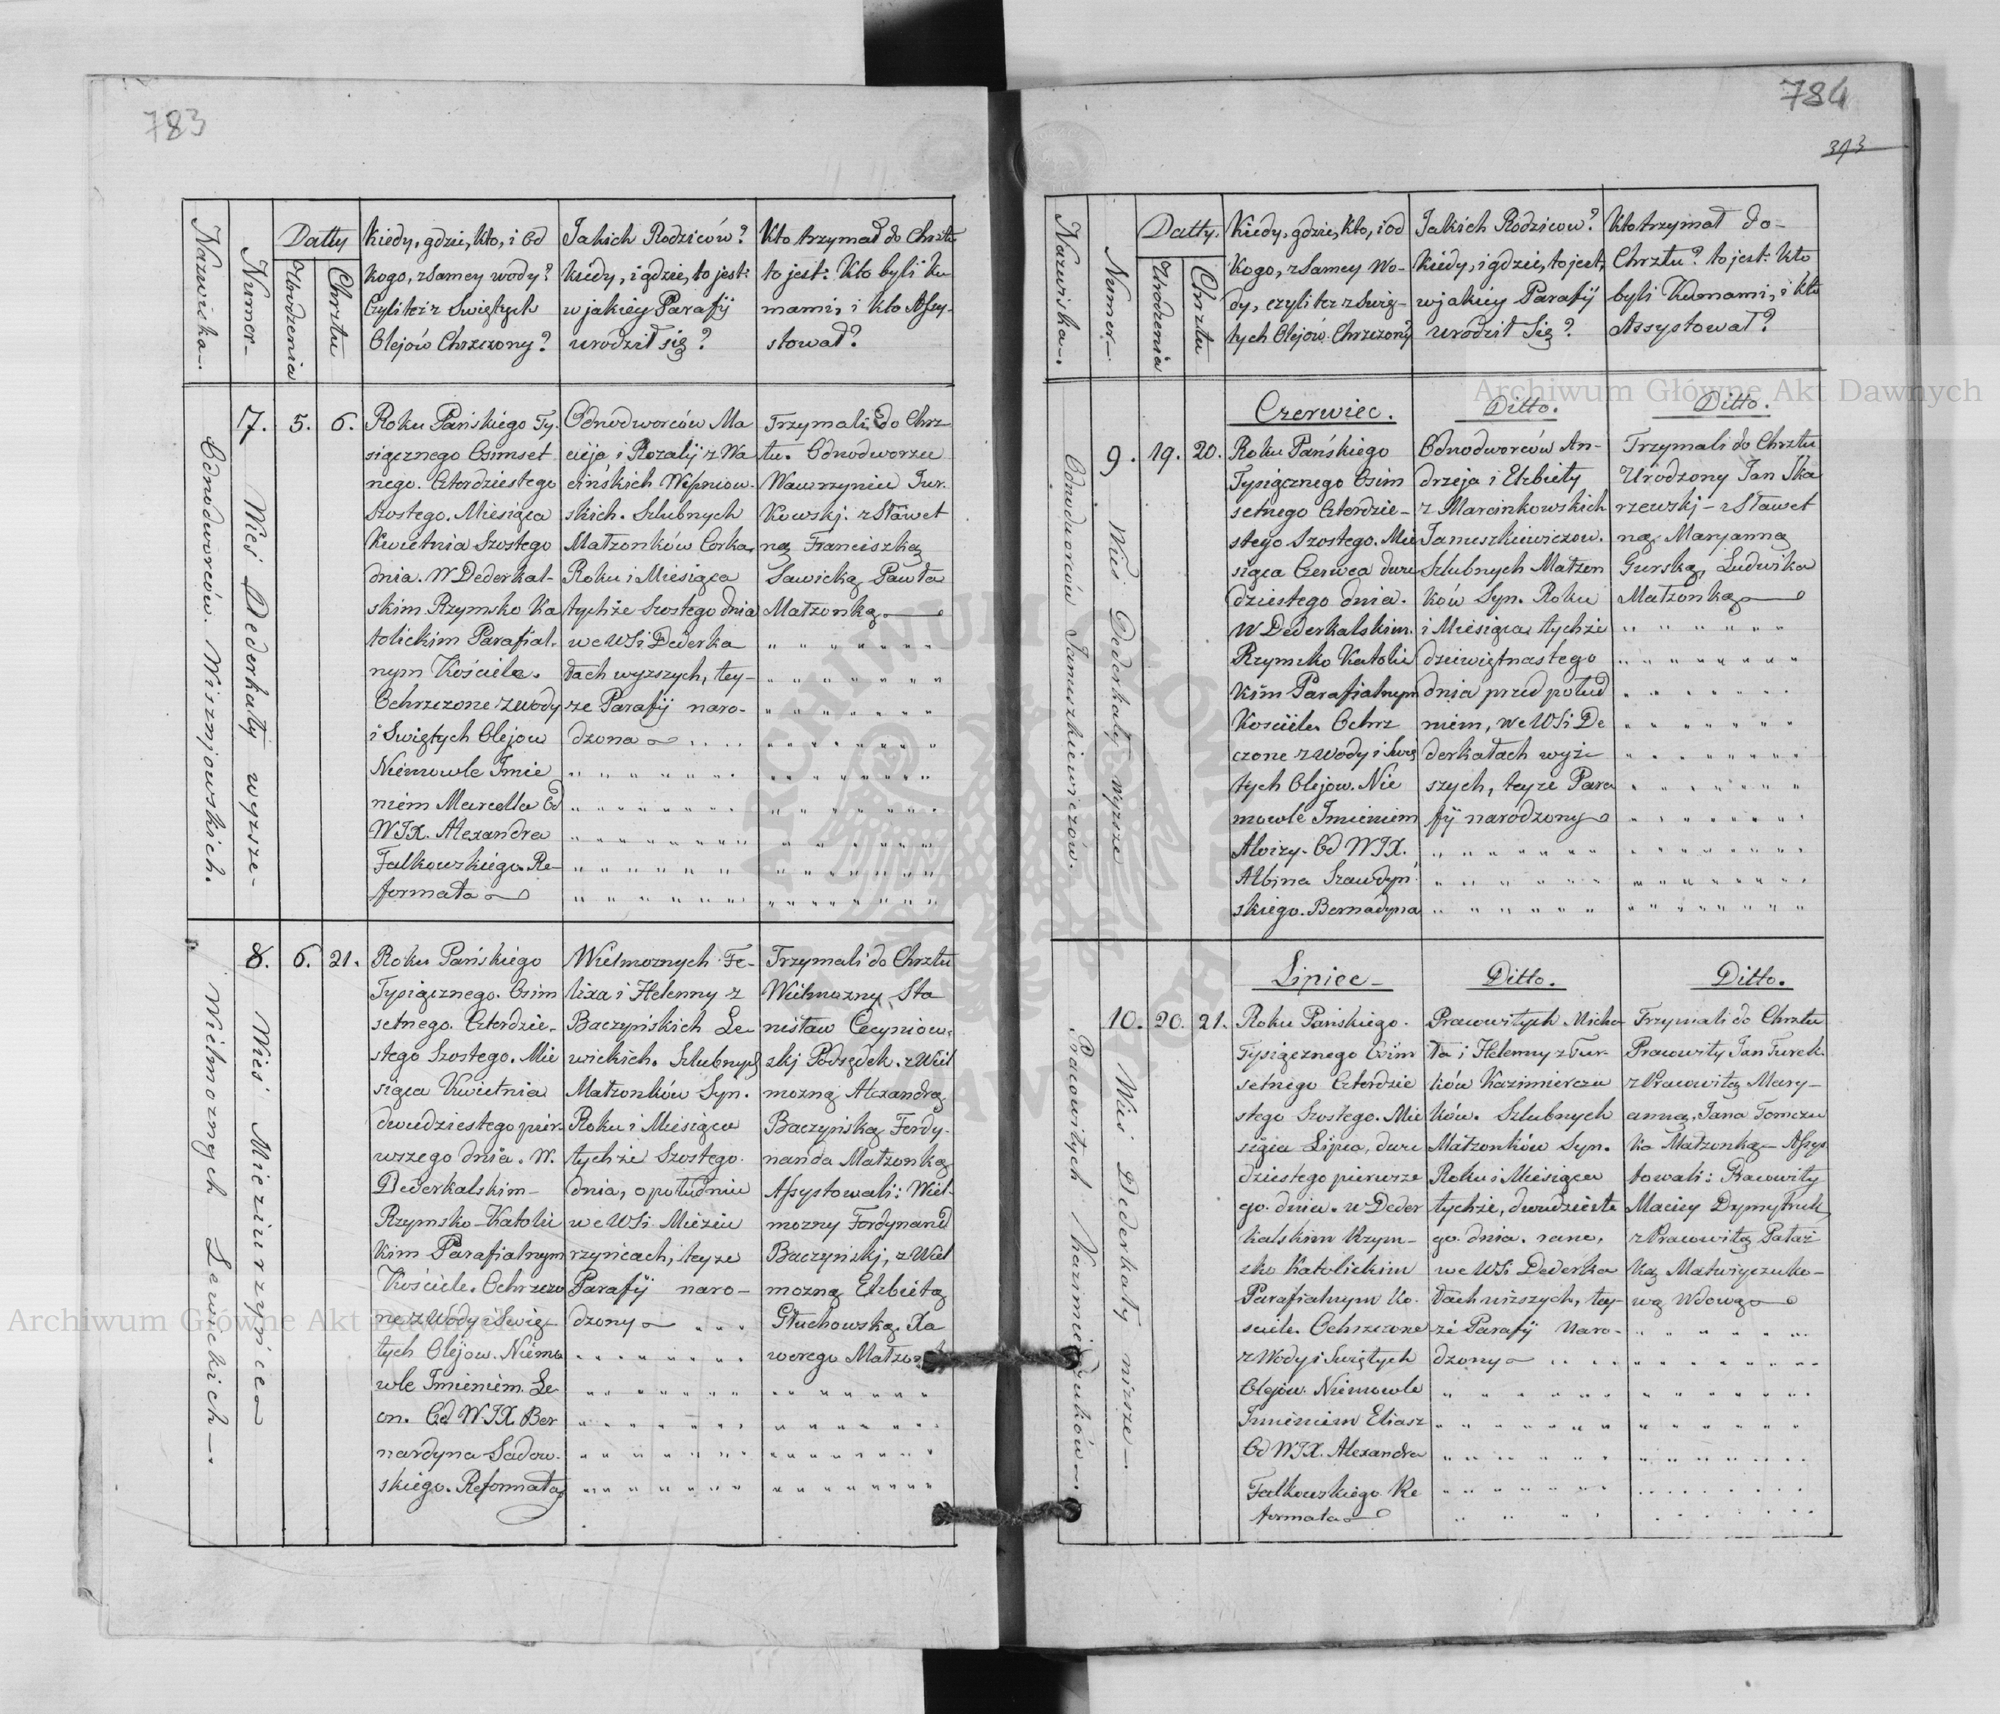 783
Nazwiska
Numer
Datty
Urodzenia
Chrztu
Kiedy, gdzie, kto, i od
kogo, z samey wody?
Czyli też z Swiętych
Olejów Chrzczony?
Jakich Rodziców?
Kiedy, i gdzie, to jest:
w jakiéy Parafij
urodził się?
Kto trzymał do Chrztu
to jest: Kto byli ku
mami, i kto Assy-
stował?
Odnodworców Wiszniowskich.
7.
Wieś Dederkały wyzsze
5.
6.
Roku Pańskiego Ty-
siącznego Osimset
nego Czterdziestego
Szostego. Miesiąca
Kwietnia Szostego
dnia. W Dederkal-
skim Rzymsko Ka
tolickim Parafial-
nym Kościele.
Ochrzczone z wody
i Swiętych Olejow
Niemowle Imie
niem Marcella Od
WJX. Alexandra
Falkowskiego Re-
formata
Odnodworców Ma
cieja i Rozalij z Wa
cińskich Wiszniow-
skich. Szlubnych
Małzonków Corka,
Roku i Miesiąca
tychże Szostego dnia
we WSi Dederka
łach wyzszych, tey-
ze Parafij naro-
dzona
Trzymali do Chrz
tu. Odnodworzec
Wawrzyniec Jur-
kowskj. z Sławet
ną Franciszką
Sawicką Pawła
Małzonką
8.
Wielmoznych Lewickich
Wieś Mieziurzyńce
6.
21.
Roku Pańskiego
Tysiącznego. Osim
setnego. Czterdzie-
stego Szostego. Mie
siąca Kwietnia
dwudziestego pier-
wszego dnia. W.
Dederkalskim
Rzymsko-Katolic
kim Parafialnym
Kościele. Ochrzczo
ne z Wody i Swię
tych Olejow. Niemo
wle Imieniem Le
on. Od WJX. Ber
nardyna Sadow-
skiego. Reformata
Wielmoznych Fe-
lixa i Helenny z
Baczyńskich Le-
wickich. Szlubnych
Małzonków Syn.
Roku i Miesiąca
tychże Szostego
dnia, o południu
we WSi Mieziu
rzyńcach, teyze
Parafij naro-
dzony
Trzymali do Chrztu
Wielmozny Sta
nisław Cecyniow-
skj Podsędek. z Wiel
mozną Alexandrą
Baczyńską Ferdy-
nanda Małzonką
Assystowali: Wiel-
mozny Ferdynand
Baczyńskj, z Wiel
mozną Elzbietą
Głuchowską Xa
werego Małzonką
784
393
Nazwiska
Numer
Datty.
Urodzenia
Chrztu
Kiedy, gdzie, kto, i od
kogo, z samey Wo-
dy, czyli też z Swię-
tych Olejów Chrzczony?
Jakich Rodzicow?
Kiedy, i gdzie, to jest,
w jakiey Parafij
urodził Się?
Kto trzymał do-
Chrztu? to jest: Kto
byli Kumami, i kto
Assystował?
Odnodworców Januszkiewiczów.
Wieś Dederkały wyzsze
Czerwiec.
Ditto.
Ditto.
9.
19.
20.
Roku Pańskiego
Tysiącznego Osim
setnego Czterdzie-
stego Szostego. Mie
siąca Czerwca dwu
dziestego dnia.
W Dederkalskim.
Rzymsko Katolic
kim Parafialnym
Kościele. Ochrz
czone z Wody i Swię
tych Olejow. Nie
mowle Imieniem
Aloizy. Od WJX.
Albina Szawdyń
skiego. Bernadyna
Odnodworców An-
drzeja i Elzbiety
z Marcinkowskich
Januszkiewiczow.
Szlubnych Małzon
ków Syn. Roku
i Miesiąca tychże
dziewiętnastego
dnia przed połud
niem, we WSi De
derkałach wyż
szych, teyze Para
fij narodzony
Trzymali do Chrztu
Urodzony Jan Ska
rzewskj - z Sławet
ną Maryanną
Gurską, Ludwika
Małzonką
Lipiec
Ditto.
Ditto.
Pracowitych Kazimierczuków
10.
Wieś Dederkały nizsze
20.
21.
Roku Pańskiego.
Tysiącznego Osim
setnego Czterdzie
stego Szostego. Mie
siąca Lipca, dwu
dziestego pierwsze
go dnia. w Deder
kalskim Rzym-
sko Katolickim
Parafialnym Ko-
sciele. Ochrzczone
z Wody i Swiętych
Olejów. Niemowle
Imieniem Eliasz
Od WJX. Alexandra
Falkowskiego Re
formata
Pracowitych Micha
ła i Helenny z Tur-
ków Kazimierczu
ków. Szlubnych
Małzonków Syn.
Roku i Miesiąca
tychże, dwudzieste
go dnia. rano,
we WSi Dederka
łach nizszych, tey-
że Parafij Naro-
dzony
Trzymali do Chrztu
Pracowity Jan Turek.
z Pracowitą Mary-
anną, Jana Tomczu
ka Małzonką - Assys
towali: Pracowity
Maciey Dymytruk,
z Pracowitą Pałaż
ką Matwiyczuko-
wą Wdową
Archiwum Główne Akt Dawnych
Archiwum Główne Akt Dawnych